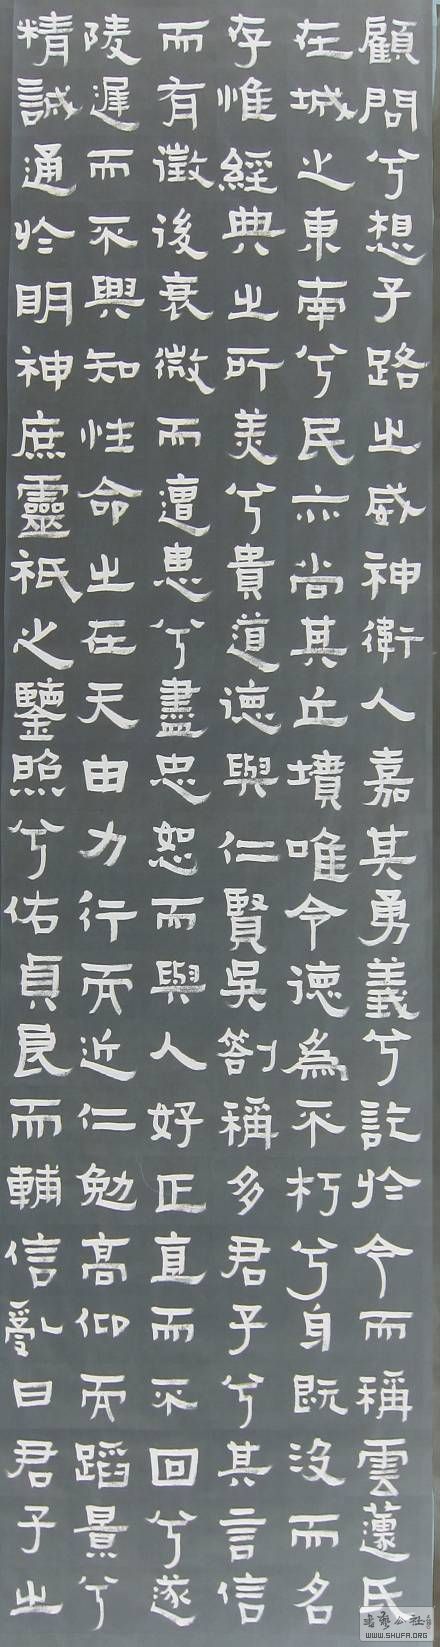 顧問兮想子路之威神衛人嘉其勇義兮訖於今而稱雲蘧氏
在城之東南兮民亦尚其丘墳唯令德為不朽兮身既沒而名
存惟經典之所美兮貴道德與仁賢吳劄稱多君子兮其言信
而有徵後衰微而遭患兮盡忠恕而與人好正直而不回兮遂
陵遲而不興知性命之在天由力行而近仁勉高仰而蹈景兮
精誠通於明神庶靈祇之鑒照兮佑貞良而輔信亂曰君子之
WWW.SHUFA.ORG